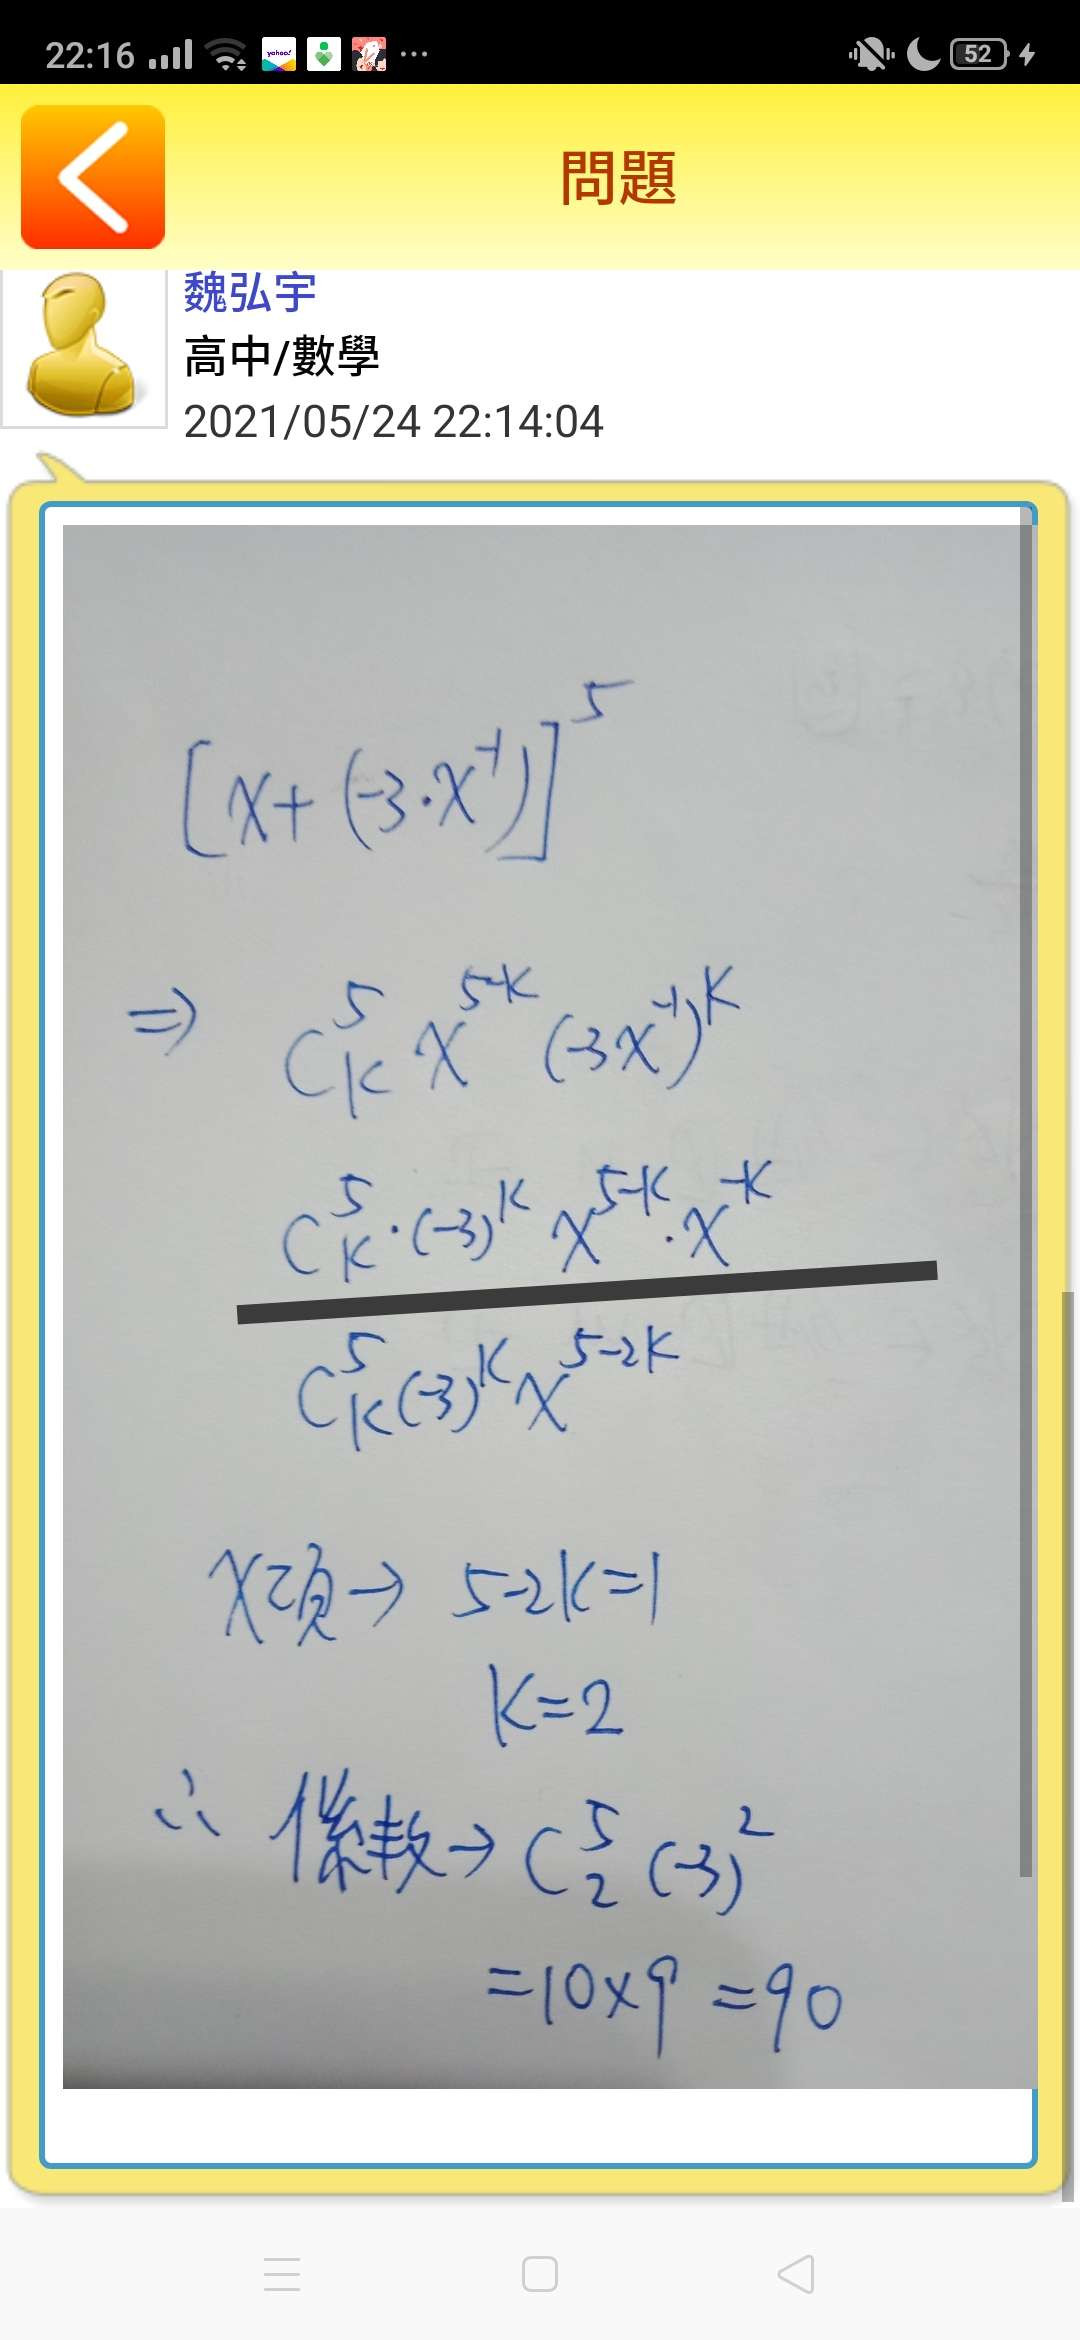 22:16 yahoo! 52
問題
魏弘宇
高中/數學
2021/05/24 22:14:04
[x+(-3·x⁻¹)]⁵
⇒ C⁵ₖ x⁵⁻ᴷ (-3x⁻¹)ᴷ
C⁵ₖ·(-3)ᴷ x⁵⁻ᴷ·x⁻ᴷ
C⁵ₖ(-3)ᴷx⁵⁻²ᴷ
x項→ 5-2K=1
K=2
∴ 係數→ C⁵₂ (-3)²
=10×9 =90